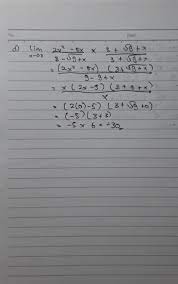 d) lim x→0 2x² - 5x / 3 - √9+x × 3 + √9+x / 3 + √9+x
= (2x² - 5x) (3 + √9+x) / 9 - 9+x
= x (2x - 5) (3 + √9+x) / x
= (2(0) - 5) (3 + √9+0)
= (-5) (3+3)
= -5 × 6 = -30